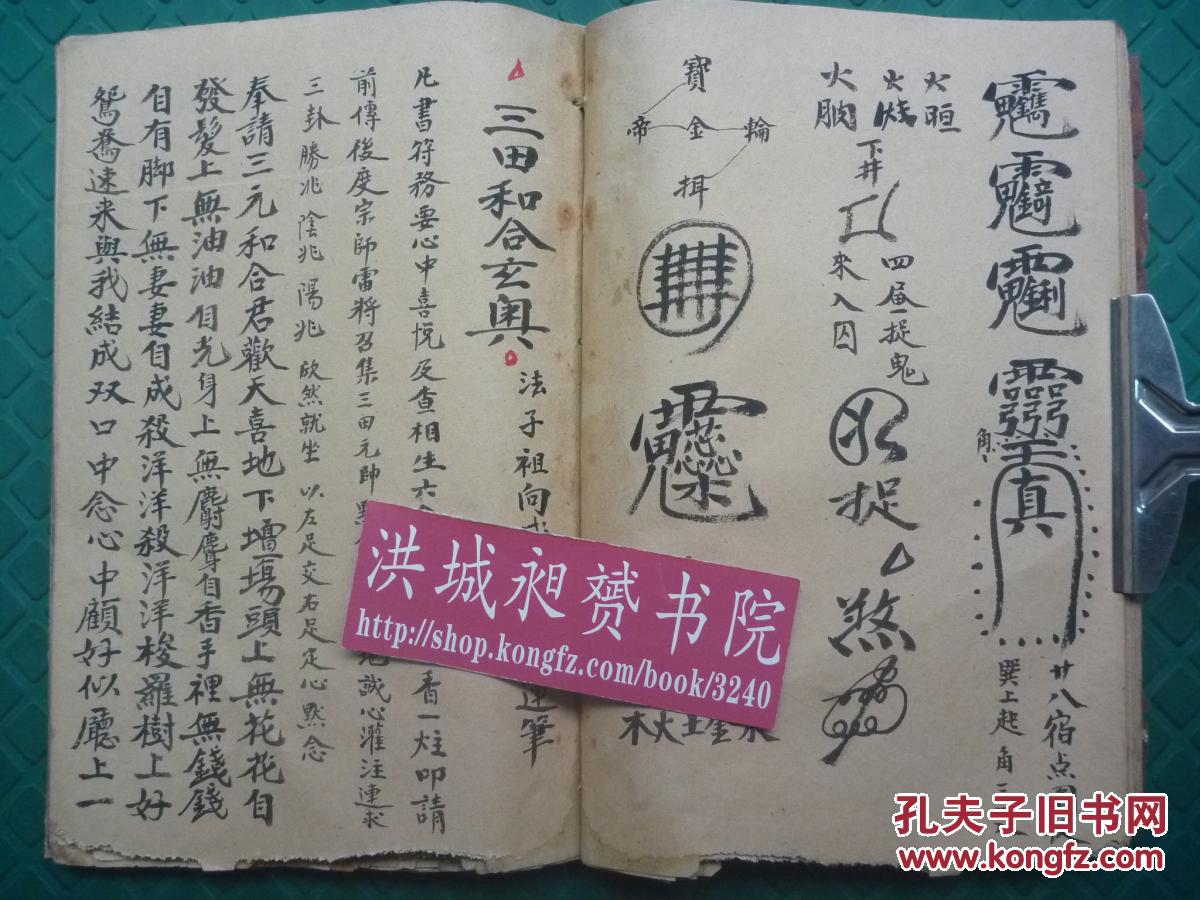 廿八宿点
巽上起角
真
角
火烜
火烧
火
下井
四
捉鬼
來入囚
捉
煞
寶
帝金輪
木火土金水
三田和合玄奥
法子祖向
筆
凡書符務要心中喜悅及查相生六
香一炷叩請
前傳後度宗師雷將召集三田元帥
地誠心灌注連求
三卦勝兆陰兆陽兆欣然就坐以左足交右足定心默念
奉請三元和合君歡天喜地下壇場頭上無花花自
發髮上無油油自光身上無麝麝自香手裡無錢錢
自有脚下無妻妻自成殺洋洋殺洋洋梭羅樹上好
鴛鴦速来與我結成双口中念心中顧好似廳上一
洪城昶赟书院
http://shop.kongfz.com/book/3240
孔夫子旧书网
www.kongfz.com